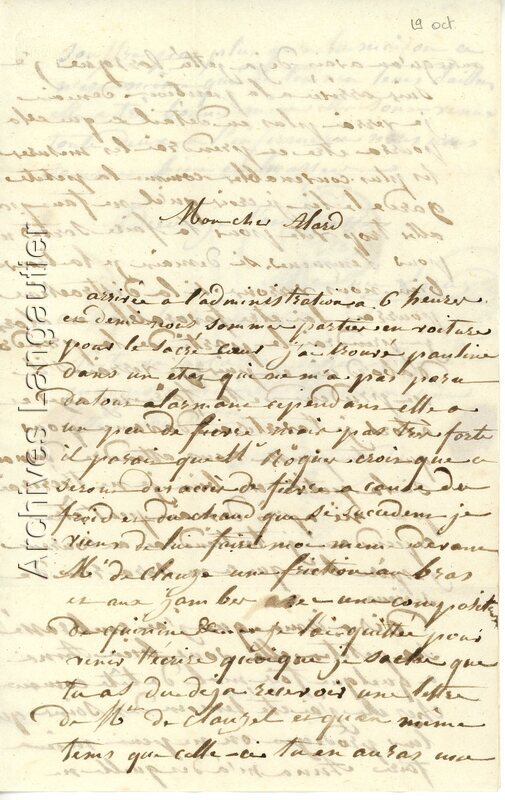 19 oct
Mon cher Alard
arrivée a l'administration a 6 heures
et demi nous somme partie en voiture
pour le sacré cœur j'ai trouvé pauline
dans un etat qui ne m'a pas paru
du tout alarmant cependant elle a
un peu de fievre mais pas tres forte
il parait que Mr Roger croit que ce
seront des accès de fievre a cause du
froid et du chaud que si succedent je
viens de lui faire moi meme devant
Me de Clauzel une friction au bras
et aux jambes avec une composition
de quinine et je l'ai quittée pour
venir t'ecrire quoique je sache que
tu as du deja recevoir une lettre
de Me de Clauzel et qu'en même
tems que celle-ci tu en auras une
Archives Langautier